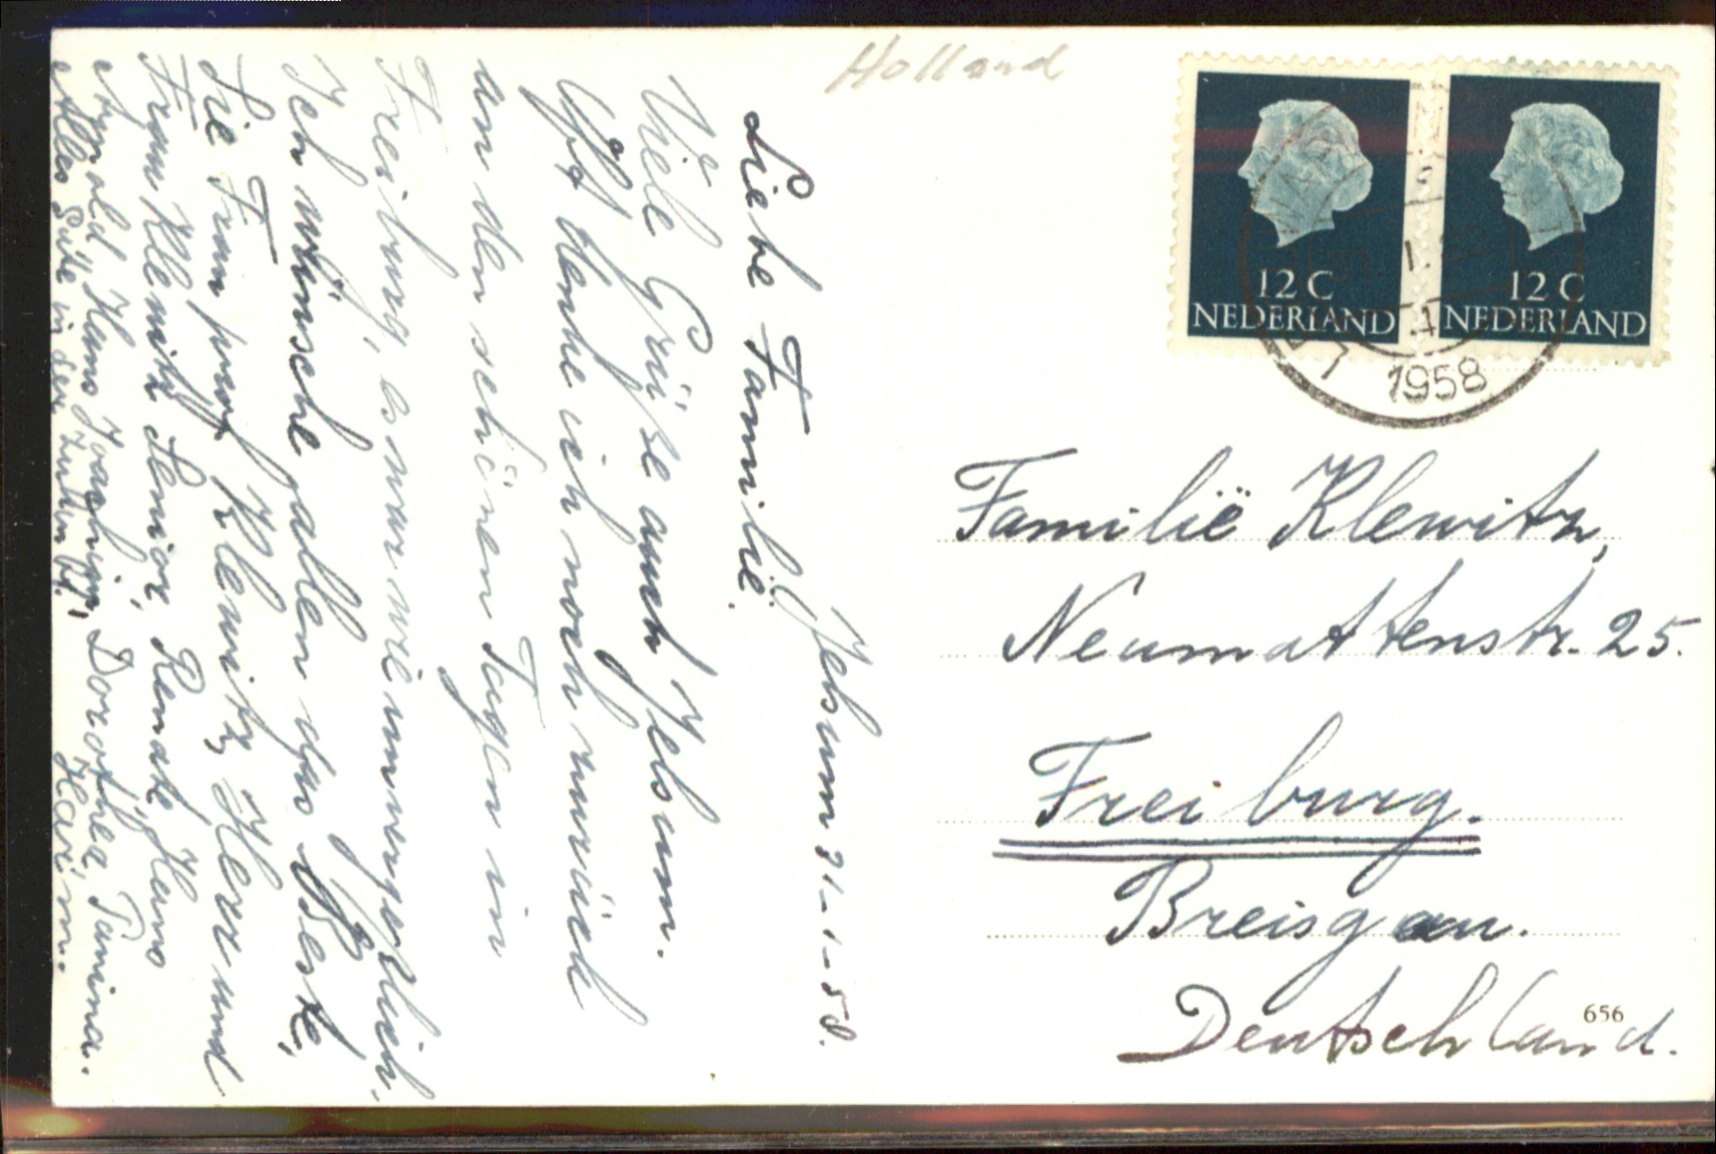 Holland
12 C
NEDERLAND
12 C
NEDERLAND
1958
Jelsum 31-1-58.
Liebe Familie.
Viele Grüße auch Jelsum.
Oft denke ich noch zurück
an den schönen Tagen in
Freiburg, es war wie unvergeßlich.
Ich wünsche allen das Beste,
Sie Frau prof Klewitz, Herr und
Frau Klewitz Senior, Renate, Hanno
Hans Joachim, Dorothea Tamina.
Alles Gute in der Zukunft.
Familië Klewitz,
Neumattenstr. 25.
Freiburg.
Breisgau.
Deutschland.
656